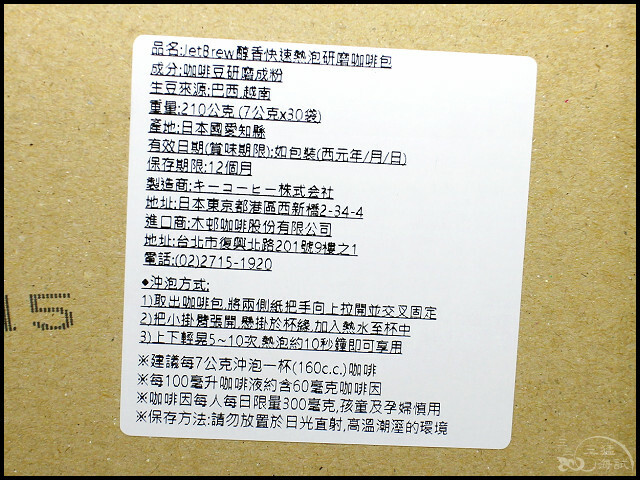 品名:JetBrew醇香快速熱泡研磨咖啡包
成分:咖啡豆研磨成粉
生豆來源:巴西,越南
重量:210公克(7公克x30袋)
產地:日本國愛知縣
有效日期(賞味期限):如包裝(西元年/月/日)
保存期限:12個月
製造商:キーコーヒー株式会社
地址:日本東京都港區西新橋2-34-4
進口商:木邨咖啡股份有限公司
地址:台北市復興北路201號9樓之1
電話:(02)2715-1920
◆沖泡方式:
1)取出咖啡包,將兩側紙把手向上拉開並交叉固定
2)把小掛臂張開,懸掛於杯緣,加入熱水至杯中
3)上下輕晃5~10次,熱泡約10秒鐘即可享用
※建議每7公克沖泡一杯(160c.c.)咖啡
※每100毫升咖啡液約含60毫克咖啡因
※咖啡因每人每日限量300毫克,孩童及孕婦慎用
※保存方法:請勿放置於日光直射,高溫潮溼的環境
15